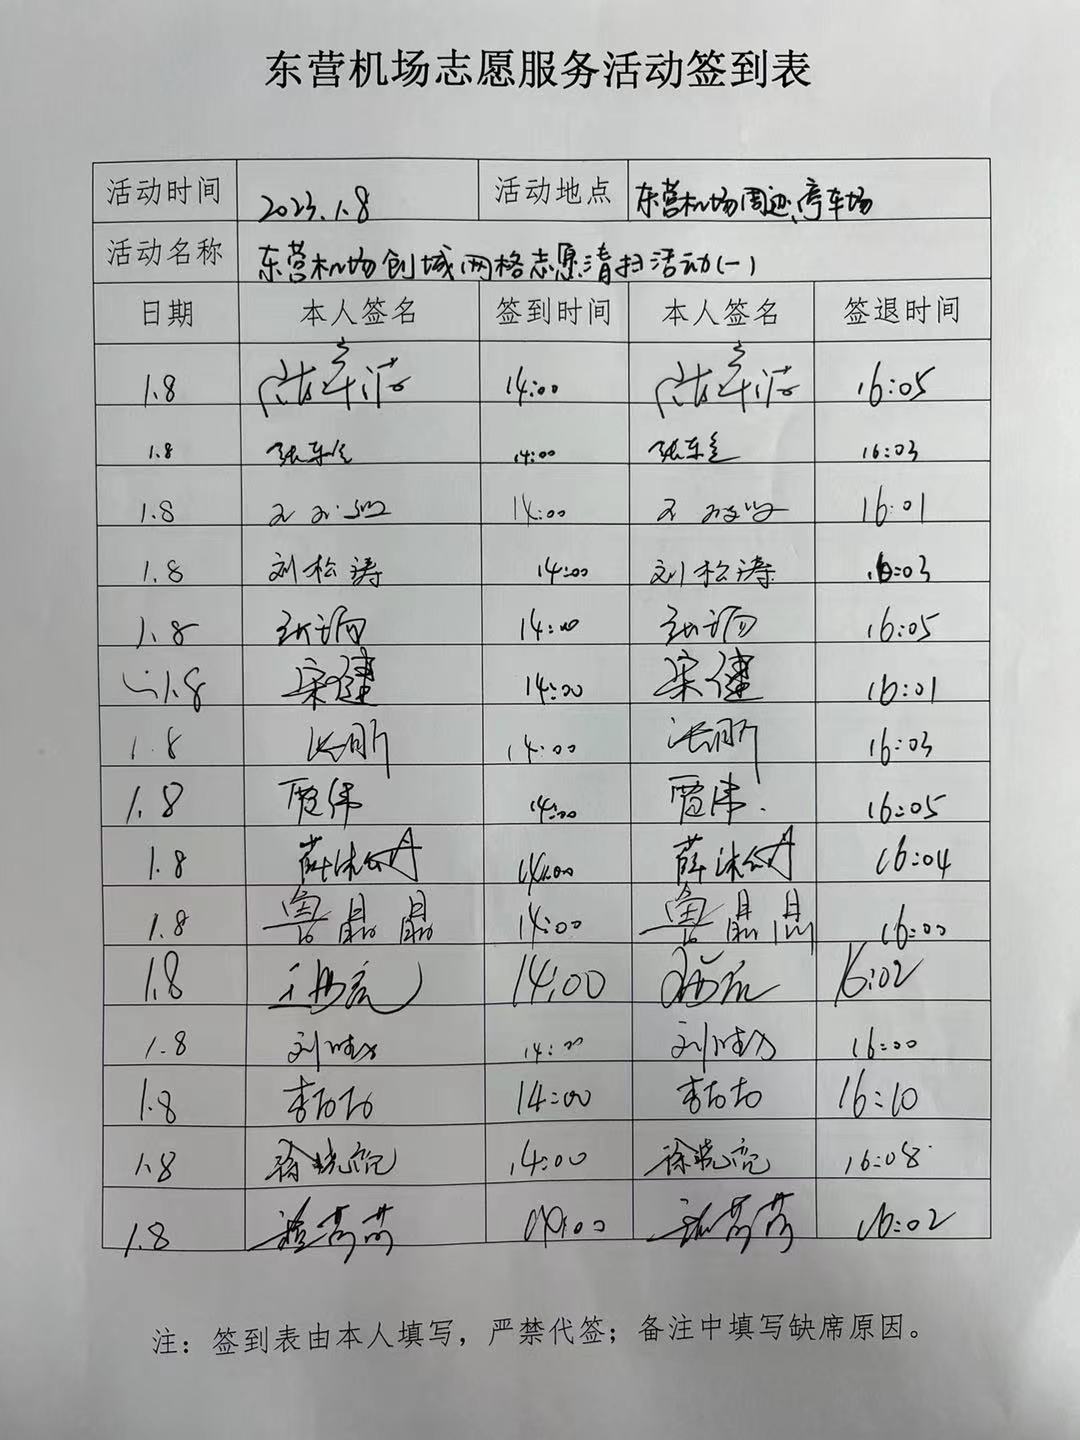 东营机场志愿服务活动签到表
活动时间 2023.1.8 活动地点 东营机场周边、停车场
活动名称 东营机场创城网格志愿清扫活动(一)
日期 本人签名 签到时间 本人签名 签退时间
1.8 14:00 16:05
1.8 14:00 16:03
1.8 14:00 16:01
1.8 刘松涛 14:00 刘松涛 16:03
1.8 14:00 16:05
1.8 宋健 14:00 宋健 16:01
1.8 14:00 16:03
1.8 贾伟 14:00 贾伟. 16:05
1.8 14:00 16:04
1.8 鲁晶晶 14:00 鲁晶晶 16:00
1.8 14:00 16:02
1.8 14:00 16:00
1.8 14:00 16:10
1.8 徐晓亮 14:00 徐晓亮 16:08
1.8 14:00 16:02
注：签到表由本人填写，严禁代签；备注中填写缺席原因。